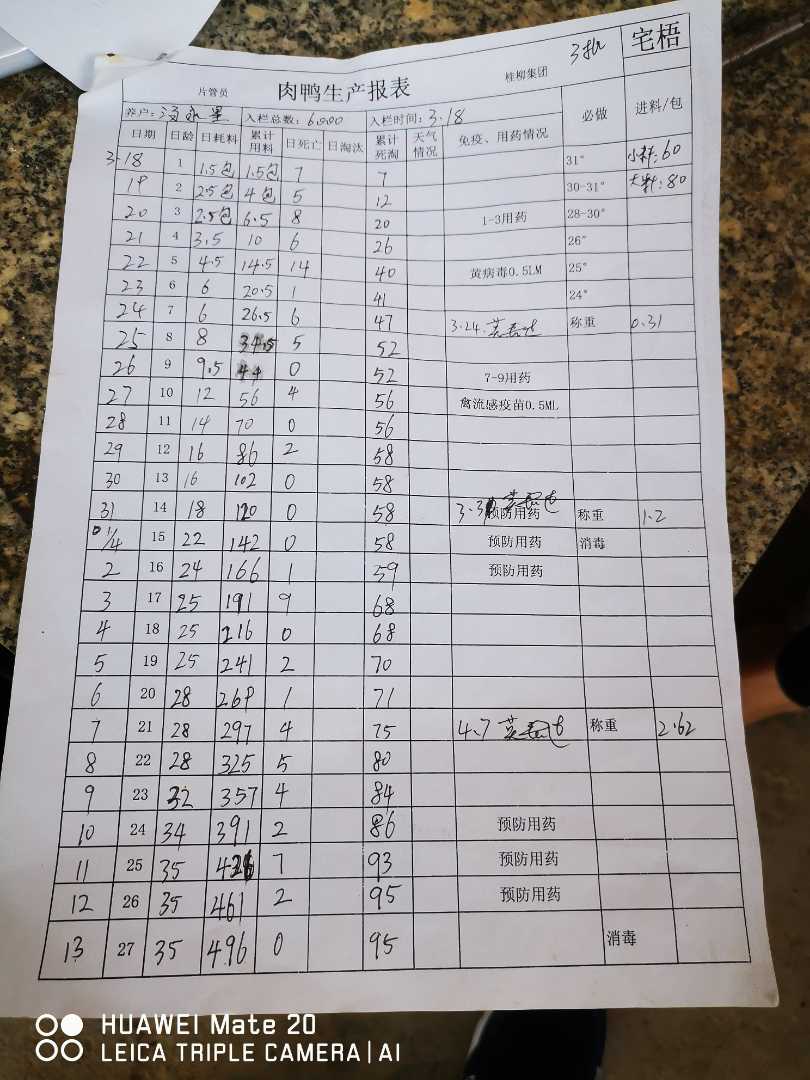 3批 宅梧
片管员 肉鸭生产报表 桂柳集团
养户: 入栏总数: 6000 入栏时间: 3.18 必做 进料/包
日期 日龄 日耗料 累计用料 日死亡 日淘汰 累计死淘 天气情况 免疫、用药情况
3.18 1 1.5包 1.5包 7 7 31° 小料:60
19 2 2.5包 4包 5 12 30-31° 大料:80
20 3 2.5包 6.5 8 20 1-3用药 28-30°
21 4 3.5 10 6 26 26°
22 5 4.5 14.5 14 40 黄病毒0.5LM 25°
23 6 6 20.5 1 41 24°
24 7 6 26.5 6 47 3.24 称重 0.31
25 8 8 34.5 5 52
26 9 9.5 44 0 52 7-9用药
27 10 12 56 4 56 禽流感疫苗0.5ML
28 11 14 70 0 56
29 12 16 86 2 58
30 13 16 102 0 58
31 14 18 120 0 58 3.31 预防用药 称重 1.2
1/4 15 22 142 0 58 预防用药 消毒
2 16 24 166 1 59 预防用药
3 17 25 191 9 68
4 18 25 216 0 68
5 19 25 241 2 70
6 20 28 269 1 71
7 21 28 297 4 75 4.7 称重 2.62
8 22 28 325 5 80
9 23 32 357 4 84
10 24 34 391 2 86 预防用药
11 25 35 426 7 93 预防用药
12 26 35 461 2 95 预防用药
13 27 35 496 0 95 消毒
HUAWEI Mate 20
LEICA TRIPLE CAMERA | AI